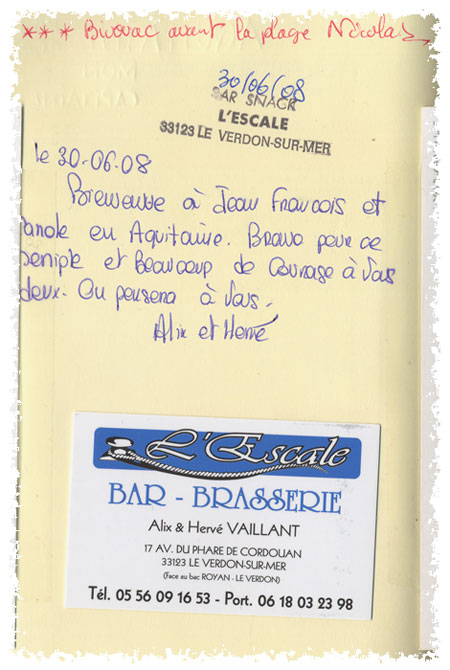 *** Bivouac avant la plage Nicolas
30/06/08
BAR SNACK
L'ESCALE
33123 LE VERDON-SUR-MER
le 30-06-08
Bienvenue à Jean Francois et
en Aquitaine. Bravo pour ce
periple et Beaucoup de Courage à Vous
deux. On pensera à Vous.
Alix et Hervé
L'Escale
BAR - BRASSERIE
Alix & Hervé VAILLANT
17 AV. DU PHARE DE CORDOUAN
33123 LE VERDON-SUR-MER
(Face au bac ROYAN - LE VERDON)
Tél. 05 56 09 16 53 - Port. 06 18 03 23 98